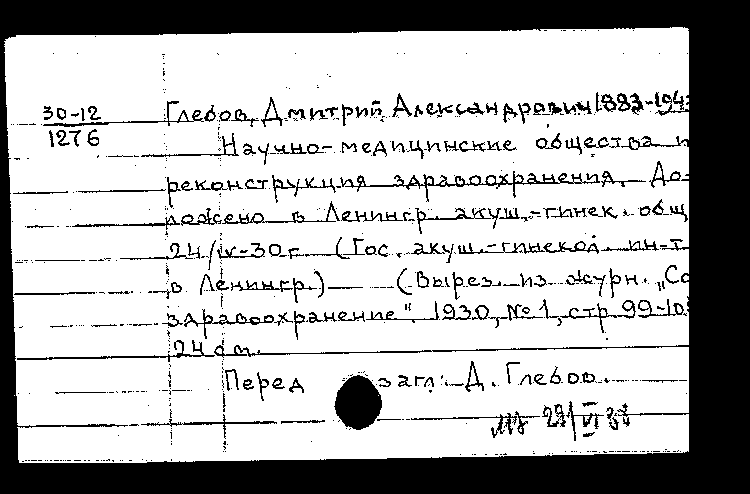 30-12
1276
Глебов, Дмитрий Александрович 1883-194
Научно-медицинские общества и
реконструкция здравоохранения. До-
ложено в Ленингр. акуш.-гинек. общ
24/IV-30г. (Гос. акуш.-гинекол. ин-т
в Ленингр.) (Вырез. из журн. „Со
здравоохранение". 1930, №1, стр. 99-10
24 cm.
Перед загл: Д. Глебов.
29/VI